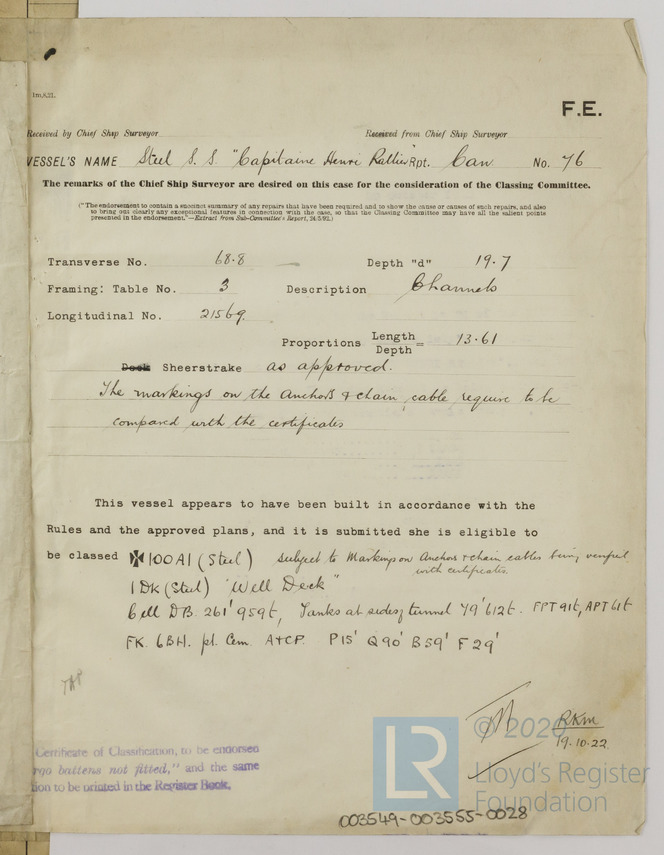 1m,8,21.
F.E.
Received by Chief Ship Surveyor Received from Chief Ship Surveyor
VESSEL'S NAME Steel S. S. "Capitaine Henri Rallier" Rpt. Can No. 76
The remarks of the Chief Ship Surveyor are desired on this case for the consideration of the Classing Committee.
("The endorsement to contain a succinct summary of any repairs that have been required and to show the cause or causes of such repairs, and also
to bring out clearly any exceptional features in connection with the case, so that the Classing Committee may have all the salient points
presented in the endorsement."—Extract from Sub-Committee's Report, 24/5/92.)
Transverse No. 68.8 Depth "d" 19.7
Framing: Table No. 3 Description Channels
Longitudinal No. 21569
Proportions Length
Depth = 13.61
Deck Sheerstrake as approved.
The markings on the anchors & chain cable require to be
compared with the certificates
This vessel appears to have been built in accordance with the
Rules and the approved plans, and it is submitted she is eligible to
be classed ✠100A1 (Steel) subject to Markings on Anchors & chain cables being verified
with certificates.
1 Dk (Steel) "Well Deck"
Cell DB. 261' 959t, Tanks at sides of tunnel 79' 612t. FPT 91t, APT 61t
FK. 6BH. pt. Cem. A&CP. P15' Q90' B59' F29'
RKM
19.10.22
Certificate of Classification, to be endorsed
rgo battens not fitted," and the same
ion to be printed in the Register Book.
© 2020
LR
Lloyd's Register
Foundation
003549-003555-0028